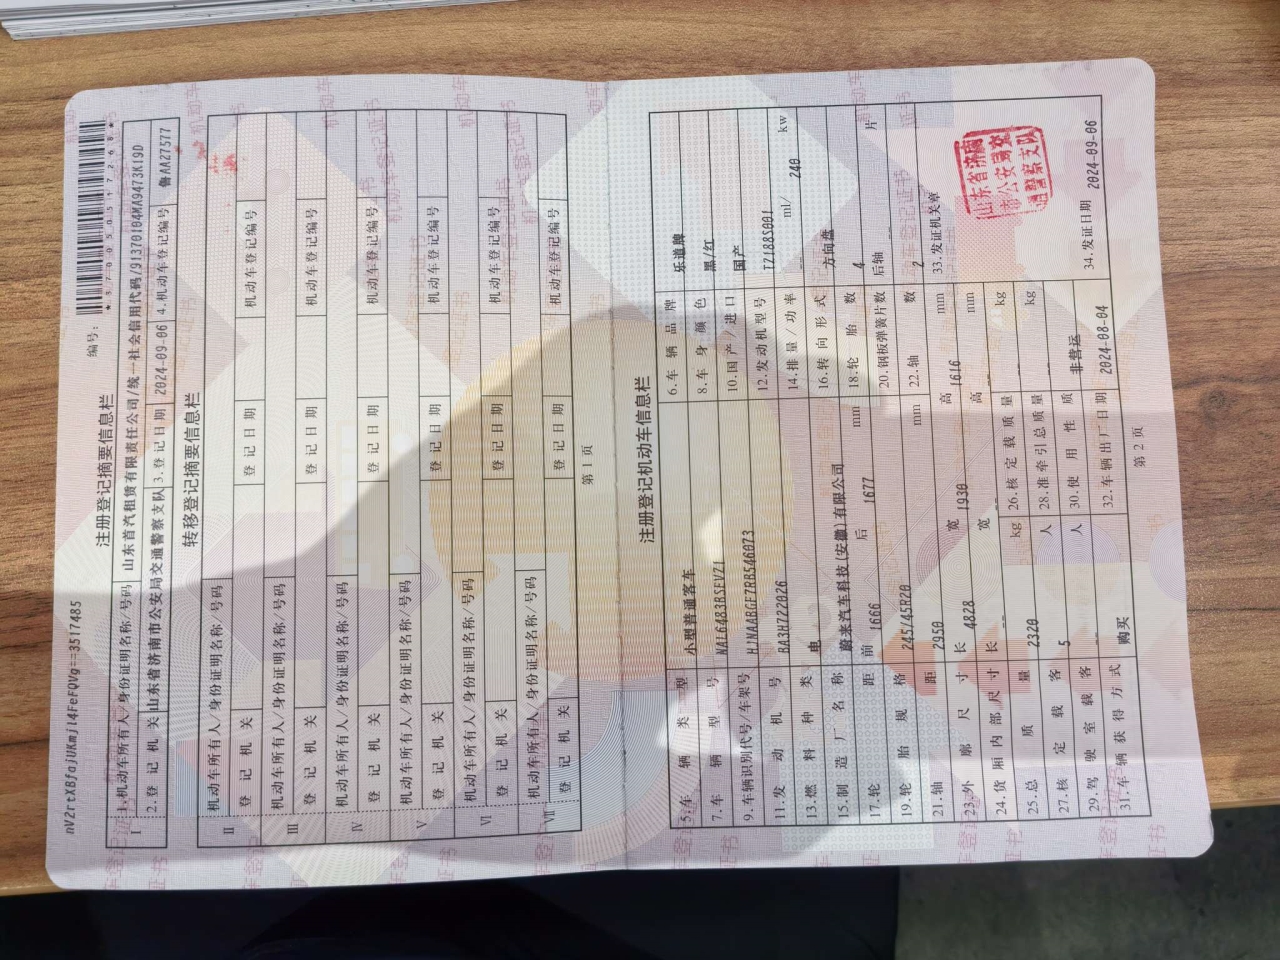 nV2rtXBfajUKmjl4FeFQVg==3517485
编号：
*370050597268*
注册登记摘要信息栏
Ⅰ 1.机动车所有人/身份证明名称/号码 山东首汽租赁有限责任公司/统一社会信用代码/91370104MA9473K19D
2.登记机关 山东省济南市公安局交通警察支队 3.登记日期 2024-09-06 4.机动车登记编号 鲁AA27577
转移登记摘要信息栏
Ⅱ 机动车所有人/身份证明名称/号码
登记机关 登记日期 机动车登记编号
Ⅲ 机动车所有人/身份证明名称/号码
登记机关 登记日期 机动车登记编号
Ⅳ 机动车所有人/身份证明名称/号码
登记机关 登记日期 机动车登记编号
Ⅴ 机动车所有人/身份证明名称/号码
登记机关 登记日期 机动车登记编号
Ⅵ 机动车所有人/身份证明名称/号码
登记机关 登记日期 机动车登记编号
Ⅶ 机动车所有人/身份证明名称/号码
登记机关 登记日期 机动车登记编号
第1页
注册登记机动车信息栏
5.车辆类型 小型普通客车 6.车辆品牌 乐道牌
7.车辆型号 NAL6483BSEVZ1 8.车身颜色 黑/红
9.车辆识别代号/车架号 HJNAABGE7RB546073 10.国产/进口 国产
11.发动机号 RA3H722026 12.发动机型号 TZ188S001
13.燃料种类 电 14.排量/功率 -- ml/ 240 kw
15.制造厂名称 蔚来汽车科技(安徽)有限公司 16.转向形式 方向盘
17.轮距 前 1666 后 1677 mm 18.轮胎数 4
19.轮胎规格 245/45R20 20.钢板弹簧片数 后轴 -- 片
21.轴距 2950 mm 22.轴数 2
23.外廓尺寸 长 4828 宽 1930 高 1616 mm 33.发证机关章
24.货厢内部尺寸 长 -- 宽 -- 高 -- mm
25.总质量 2320 kg 26.核定载质量 -- kg
27.核定载客 5 人 28.准牵引总质量 -- kg
29.驾驶室载客 -- 人 30.使用性质 非营运
31.车辆获得方式 购买 32.车辆出厂日期 2024-08-04 34.发证日期 2024-09-06
山东省济南
市公安局交
通警察支队
第2页